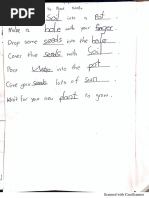 to Plant seeds
Soil into a pot.
Make a hole with your finger.
Drop some seeds into the hole.
Cover the seeds with Soil.
Poor water into the pot.
Cave you seeds lots of sun.
Wait for your new plant to grow.
Scanned with CamScanner